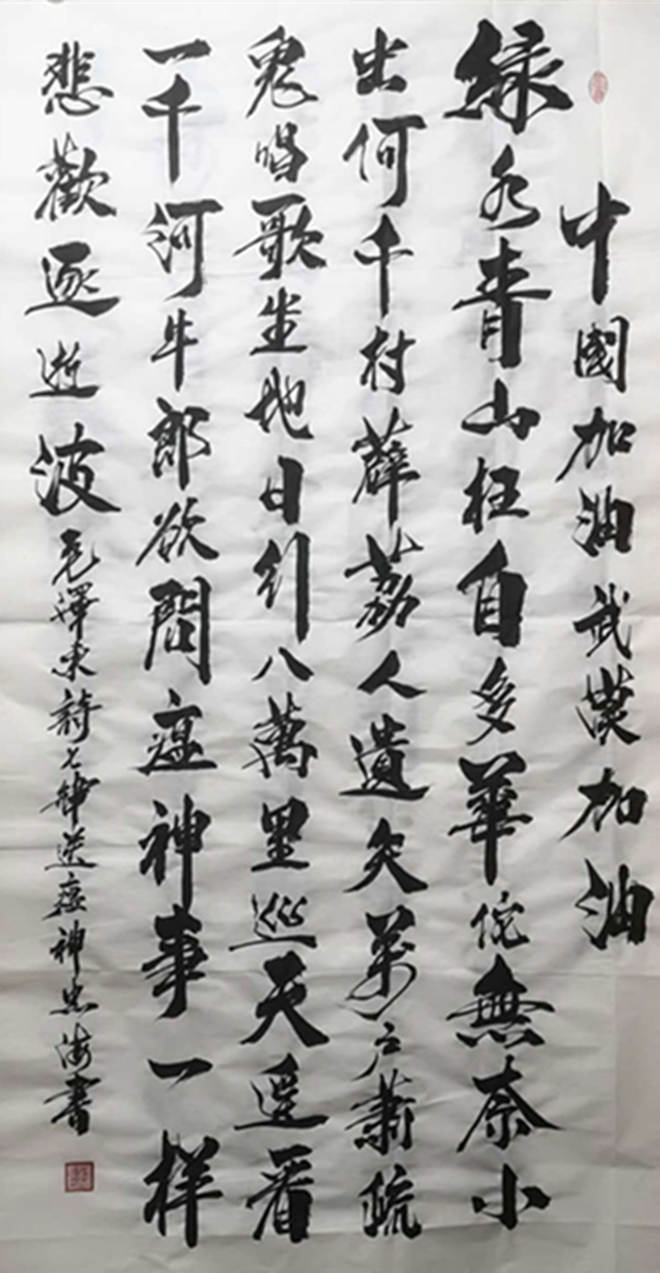 中國加油武漢加油
緑水青山枉自多華佗無奈小
出何千村薜荔人遺矢萬户蕭疏
鬼唱歌坐地日行八萬里巡天遥看
一千河牛郎欲問瘟神事一样
悲歡逐逝波毛澤東詩七律送瘟神忠海書